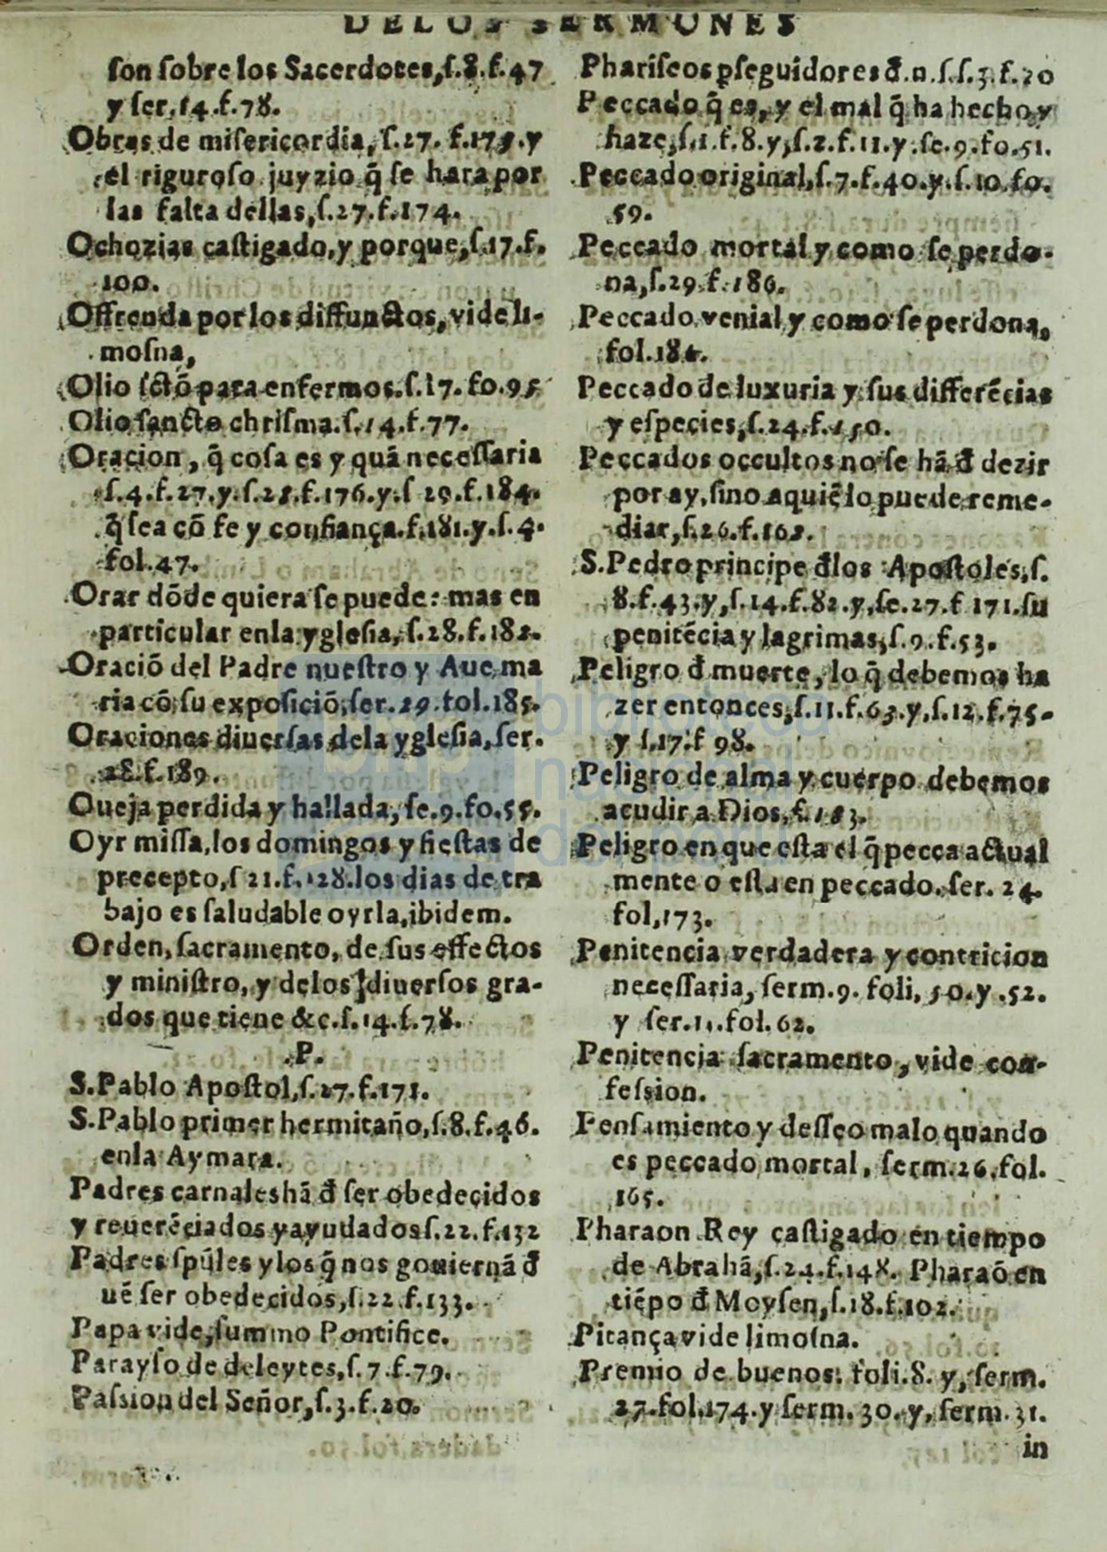 DELOS SERMONES
ſon ſobre los Sacerdotes,ſ.8.f.47
y ſer.14.f.78.
Obras de miſericordia, ſ.27. f.175.y
el riguroſo juyzio q̃ ſe hara por
las falta dellas,ſ.27.f.174.
Ochozias caſtigado,y porque,ſ.17.f.
100.
Offrenda por los diffunctos, vide li-
moſna,
Olio ſctõ para enfermos.ſ.17.fo.95
Olio ſancto chriſma.ſ.14.f.77.
Oracion, q̃ coſa es y quã neceſſaria
ſ.4.f.27.y.ſ.28.f.176.y.ſ 29.f.184.
q̃ ſea cõ fe y confiança.f.181.y.ſ.4.
fol.47.
Orar dõde quiera ſe puede: mas en
particular enla ygleſia, ſ.28.f.182.
Oració del Padre nueſtro y Aue ma
ria cõ ſu expoſiciõ, ſer.29.fol.185.
Oraciones diuerſas dela ygleſia, ſer.
28.f.189.
Oueja perdida y hallada, ſe.9.fo.55.
Oyr miſſa,los domingos y fieſtas de
precepto,ſ 21.f.128.los dias de tra
bajo es ſaludable oyrla,ibidem.
Orden, ſacramento, de ſus effectos
y miniſtro, y delos diuerſos gra-
dos que tiene &c.ſ.14.f.78.
.P.
S.Pablo Apoſtol,ſ.27.f.171.
S.Pablo primer hermitaño,ſ.8.f.46.
enla Aymara.
Padres carnales hã đ ſer obedecidos
y reuerẽciados y ayudados ſ.22.f.132
Padres ſpũles y los q̃ nos gouiernã đ
uẽ ſer obedecidos,ſ.22.f.133.
Papa vide, ſummo Pontifice.
Parayſo de deleytes,ſ.7.f.79.
Paſsion del Señor,ſ.3.f.20.
Phariſeos pſeguidores đ.n.ſ.ſ.3.f.20
Peccado q̃ es, y el mal q̃ ha hecho y
haze,ſ.1.f.8.y,ſ.2.f.11.y.ſe.9.fo.51.
Peccado original,ſ.7.f.40.y.ſ.10.fo.
59.
Peccado mortal y como ſe perdo-
na,ſ.29.f.186.
Peccado venial y como ſe perdona,
fol.184.
Peccado de luxuria y ſus differẽcias
y eſpecies,ſ.24.f.150.
Peccados occultos no ſe hã đ dezir
por ay, ſino a quiẽ lo puede reme-
diar, ſ.26.f.165.
S.Pedro principe đlos Apoſtoles,ſ.
8.f.43.y,ſ.14.f.82.y,ſe.27.f 171.ſu
penitẽcia y lagrimas,ſ.9.f.53.
Peligro đ muerte, lo q̃ debemos ha
zer entonces,ſ.11.f.63.y,ſ.12.f.75.
y ſ.17.f 98.
Peligro de alma y cuerpo debemos
acudir a Dios,f.183.
Peligro en que eſta el q̃ pecca actual
mente o eſta en peccado. ſer. 24.
fol,173.
Penitencia verdadera y contricion
neceſſaria, ſerm.9. foli, 50.y .52.
y ſer.11.fol.62.
Penitencia ſacramento, vide con-
feſsion.
Penſamiento y deſſeo malo quando
es peccado mortal, ſerm.26.fol.
165.
Pharaon Rey caſtigado en tiempo
de Abrahã,ſ.24.f.148. Pharaõ en
tiẽpo đ Moyſen,ſ.18.f.102.
Pitança vide limoſna.
Premio de buenos: foli.8. y, ſerm.
27.fol.174.y ſerm. 30. y, ſerm. 31.
in